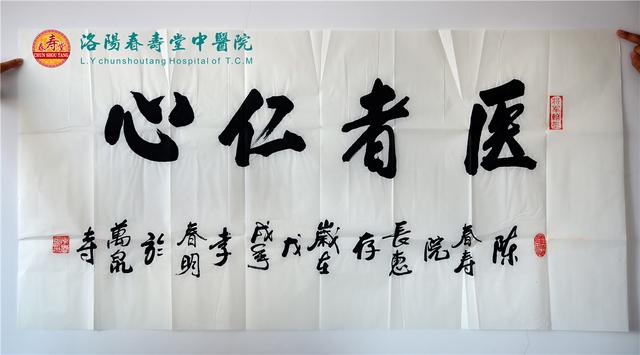 春壽堂
CHUN SHOU TANG
洛陽春壽堂中醫院
L.Y chunshoutang Hospital of T.C.M
医者仁心
陈春寿院長惠存歲在戊戌年李春明於萬泉寺